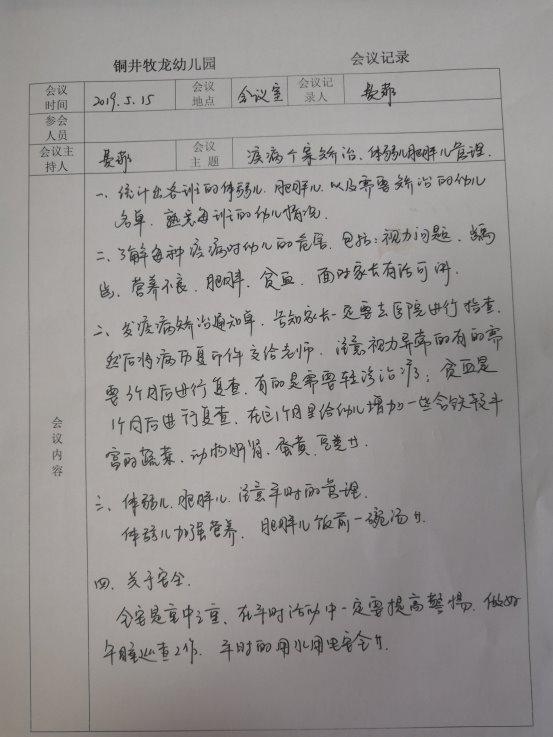 铜井牧龙幼儿园 会议记录
会议时间 2019.5.15 会议地点 会议室 会议记录人
参会人员
会议主持人 会议主题 疾病个案矫治、体弱儿肥胖儿管理.
一、统计出各班的体弱儿、肥胖儿、以及需要矫治的幼儿
名单、熟悉每班的幼儿情况.
二、了解每种疾病对幼儿的危害、包括:视力问题、龋
齿、营养不良、肥胖、贫血、面对家长有话可讲.
二、发疾病矫治通知单、告知家长一定要去医院进行检查.
然后将病历复印件交给老师. 注意视力异常的有的需
要3个月后进行复查、有的是需要转诊治疗; 贫血是
1个月后进行复查、在这1个月里给幼儿增加一些含铁较丰
富的蔬菜、动物肝肾、蛋黄、豆类等
三、体弱儿、肥胖儿、注意平时的管理.
体弱儿加强营养、肥胖儿饭前一碗汤等.
四、关于安全.
安全是重中之重、在平时活动中一定要提高警惕、做好
午睡巡查工作、平时的用水用电安全等.
会议内容